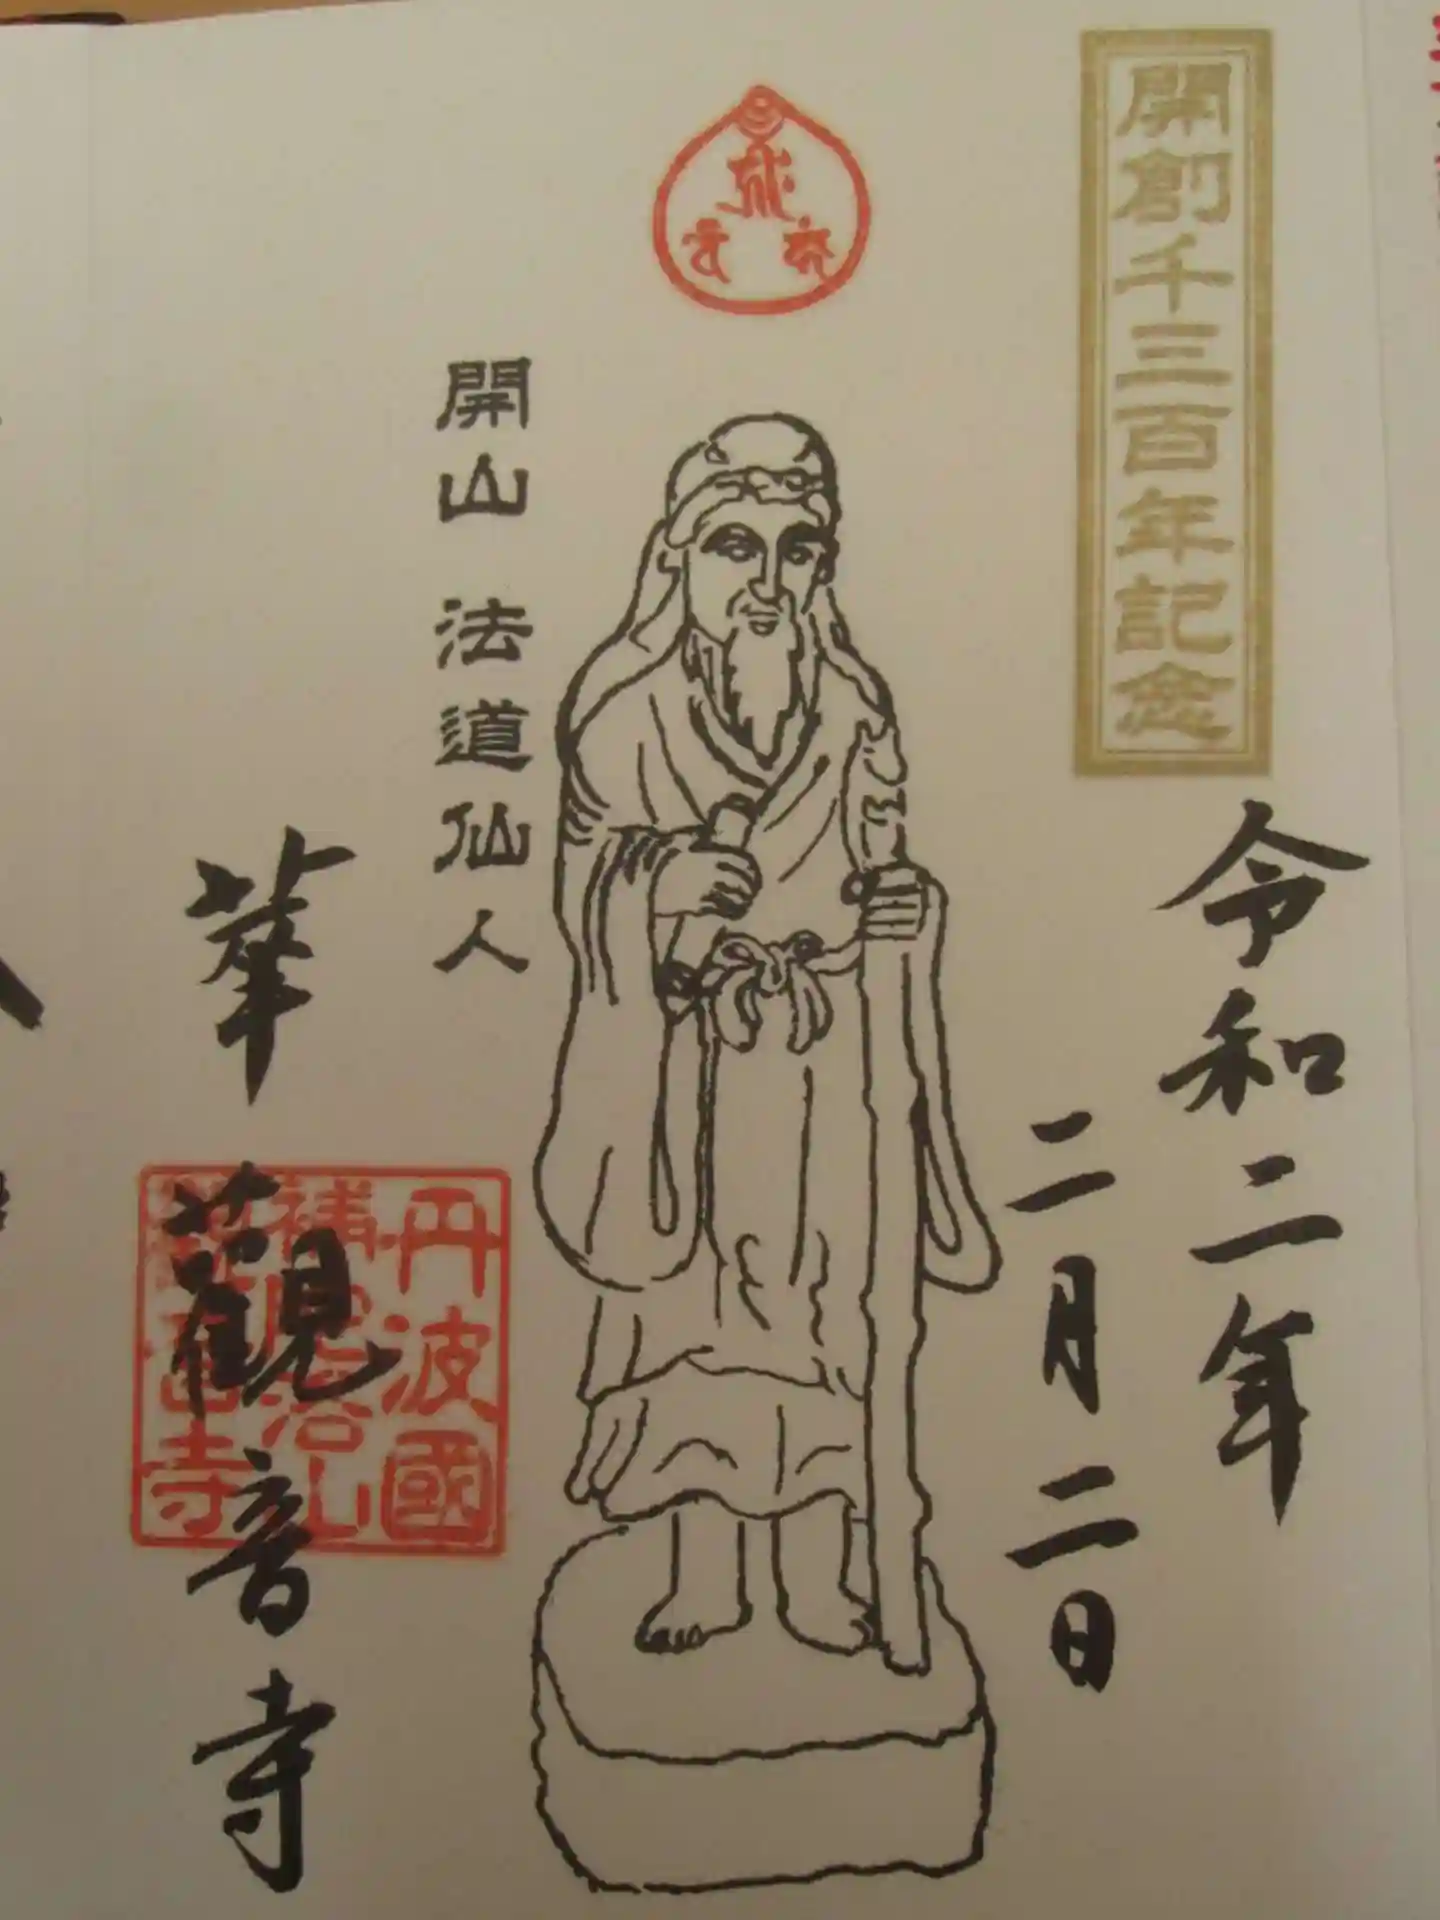 開創千三百年記念
令和二年
二月二日
開山 法道仙人
華觀音寺
丹波國
補陀洛山
觀音寺